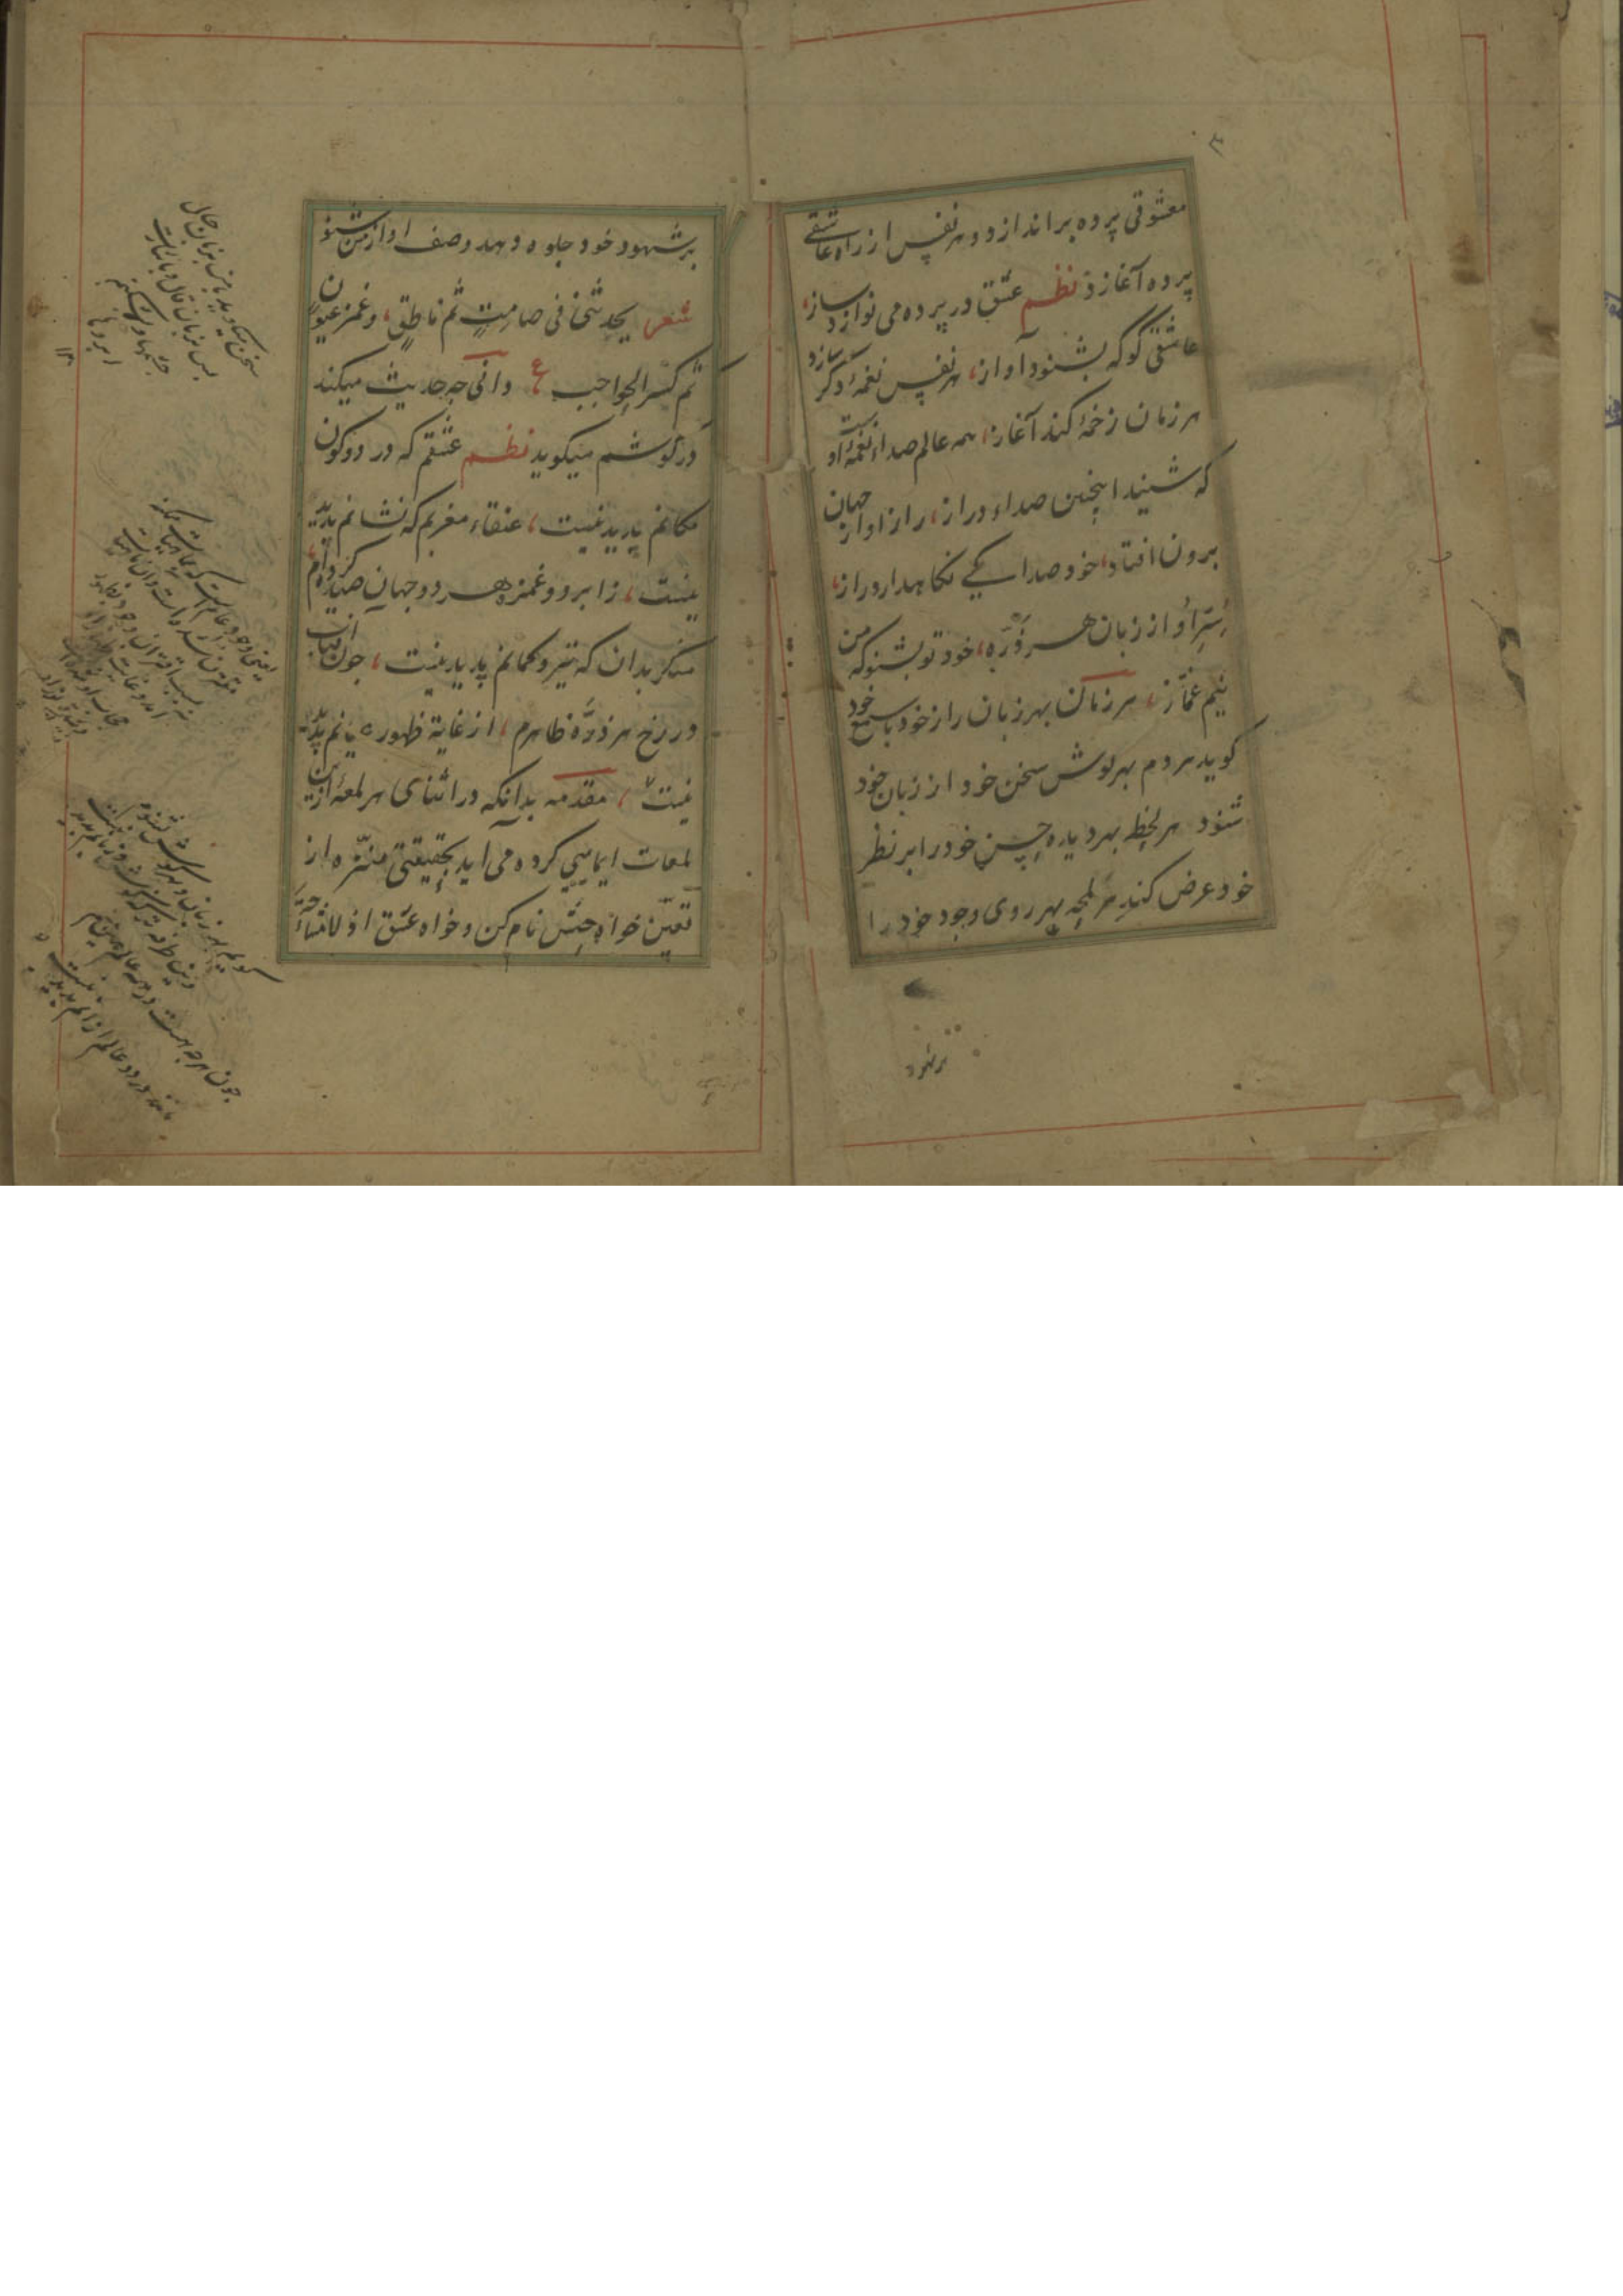 معشوقی پرده براندازد و هر نفس از راه عاشقی
پرده آغازد نظم عشق در پرده می نوازد ساز،
عاشقی کو که بشنود آواز، هر نفس نغمهٔ دگر سازد
هر زمان زخمهٔ کند آغاز، همه عالم صداء نغمهٔ اوست
که شنید اینچنین صداء دراز، راز او از جهان
برون افتاد، خود صدا کی نکاهدارد راز،
سِرّ او از زبان هر ذرّه، خود تو بشنو که من
نیم غمّاز، هر زمان بهر زبان راز خود با سمع خود
کوید هر دم بهر کوش سخن خود از زبان خود
شنود هر لحظه بهر دیده حسن خود را بر نظر
خود عرض کند هر لمحه بهر روی وجود خود را
بر شهود
بر شهود خود جلوه دهد وصف او از من شنو
شعر یحدثنی فی صامت ثم ناطق، و غمز عیون
ثم کسر الحواجب ع دانی چه حدیث میکند
در کوشم میکوید نظم عشقم که در دو کون
مکانم پدید نیست، عنقاء مغربم که نشانم پدید
نیست، ز ابرو و غمزه هر دو جهان صید کرده‌ام
منکر بدان که تیر و کمانم پدید نیست، چون آفتاب
در رخ هر ذرّه ظاهرم، از غایة ظهور عیانم پدید
نیست، مقدمه بدانکه در اثنای هر لمعهٔ از این
لمعات ایمایی کرده می آید بحقیقتی منزّه از
تعیّن خواه حبّش نام کن و خواه عشق اذ لا مشاحّة
سخن میکوید با من بزبان حال
پس بزبان قال
ابروها
کویم بهر زبان و بهر کوش بشنوم
وین طرفه تر که کوش و زبانم پدید نیست
چون هرچه هست در همه عالم همین منم
مانند در دو عالم از آنم پدید نیست